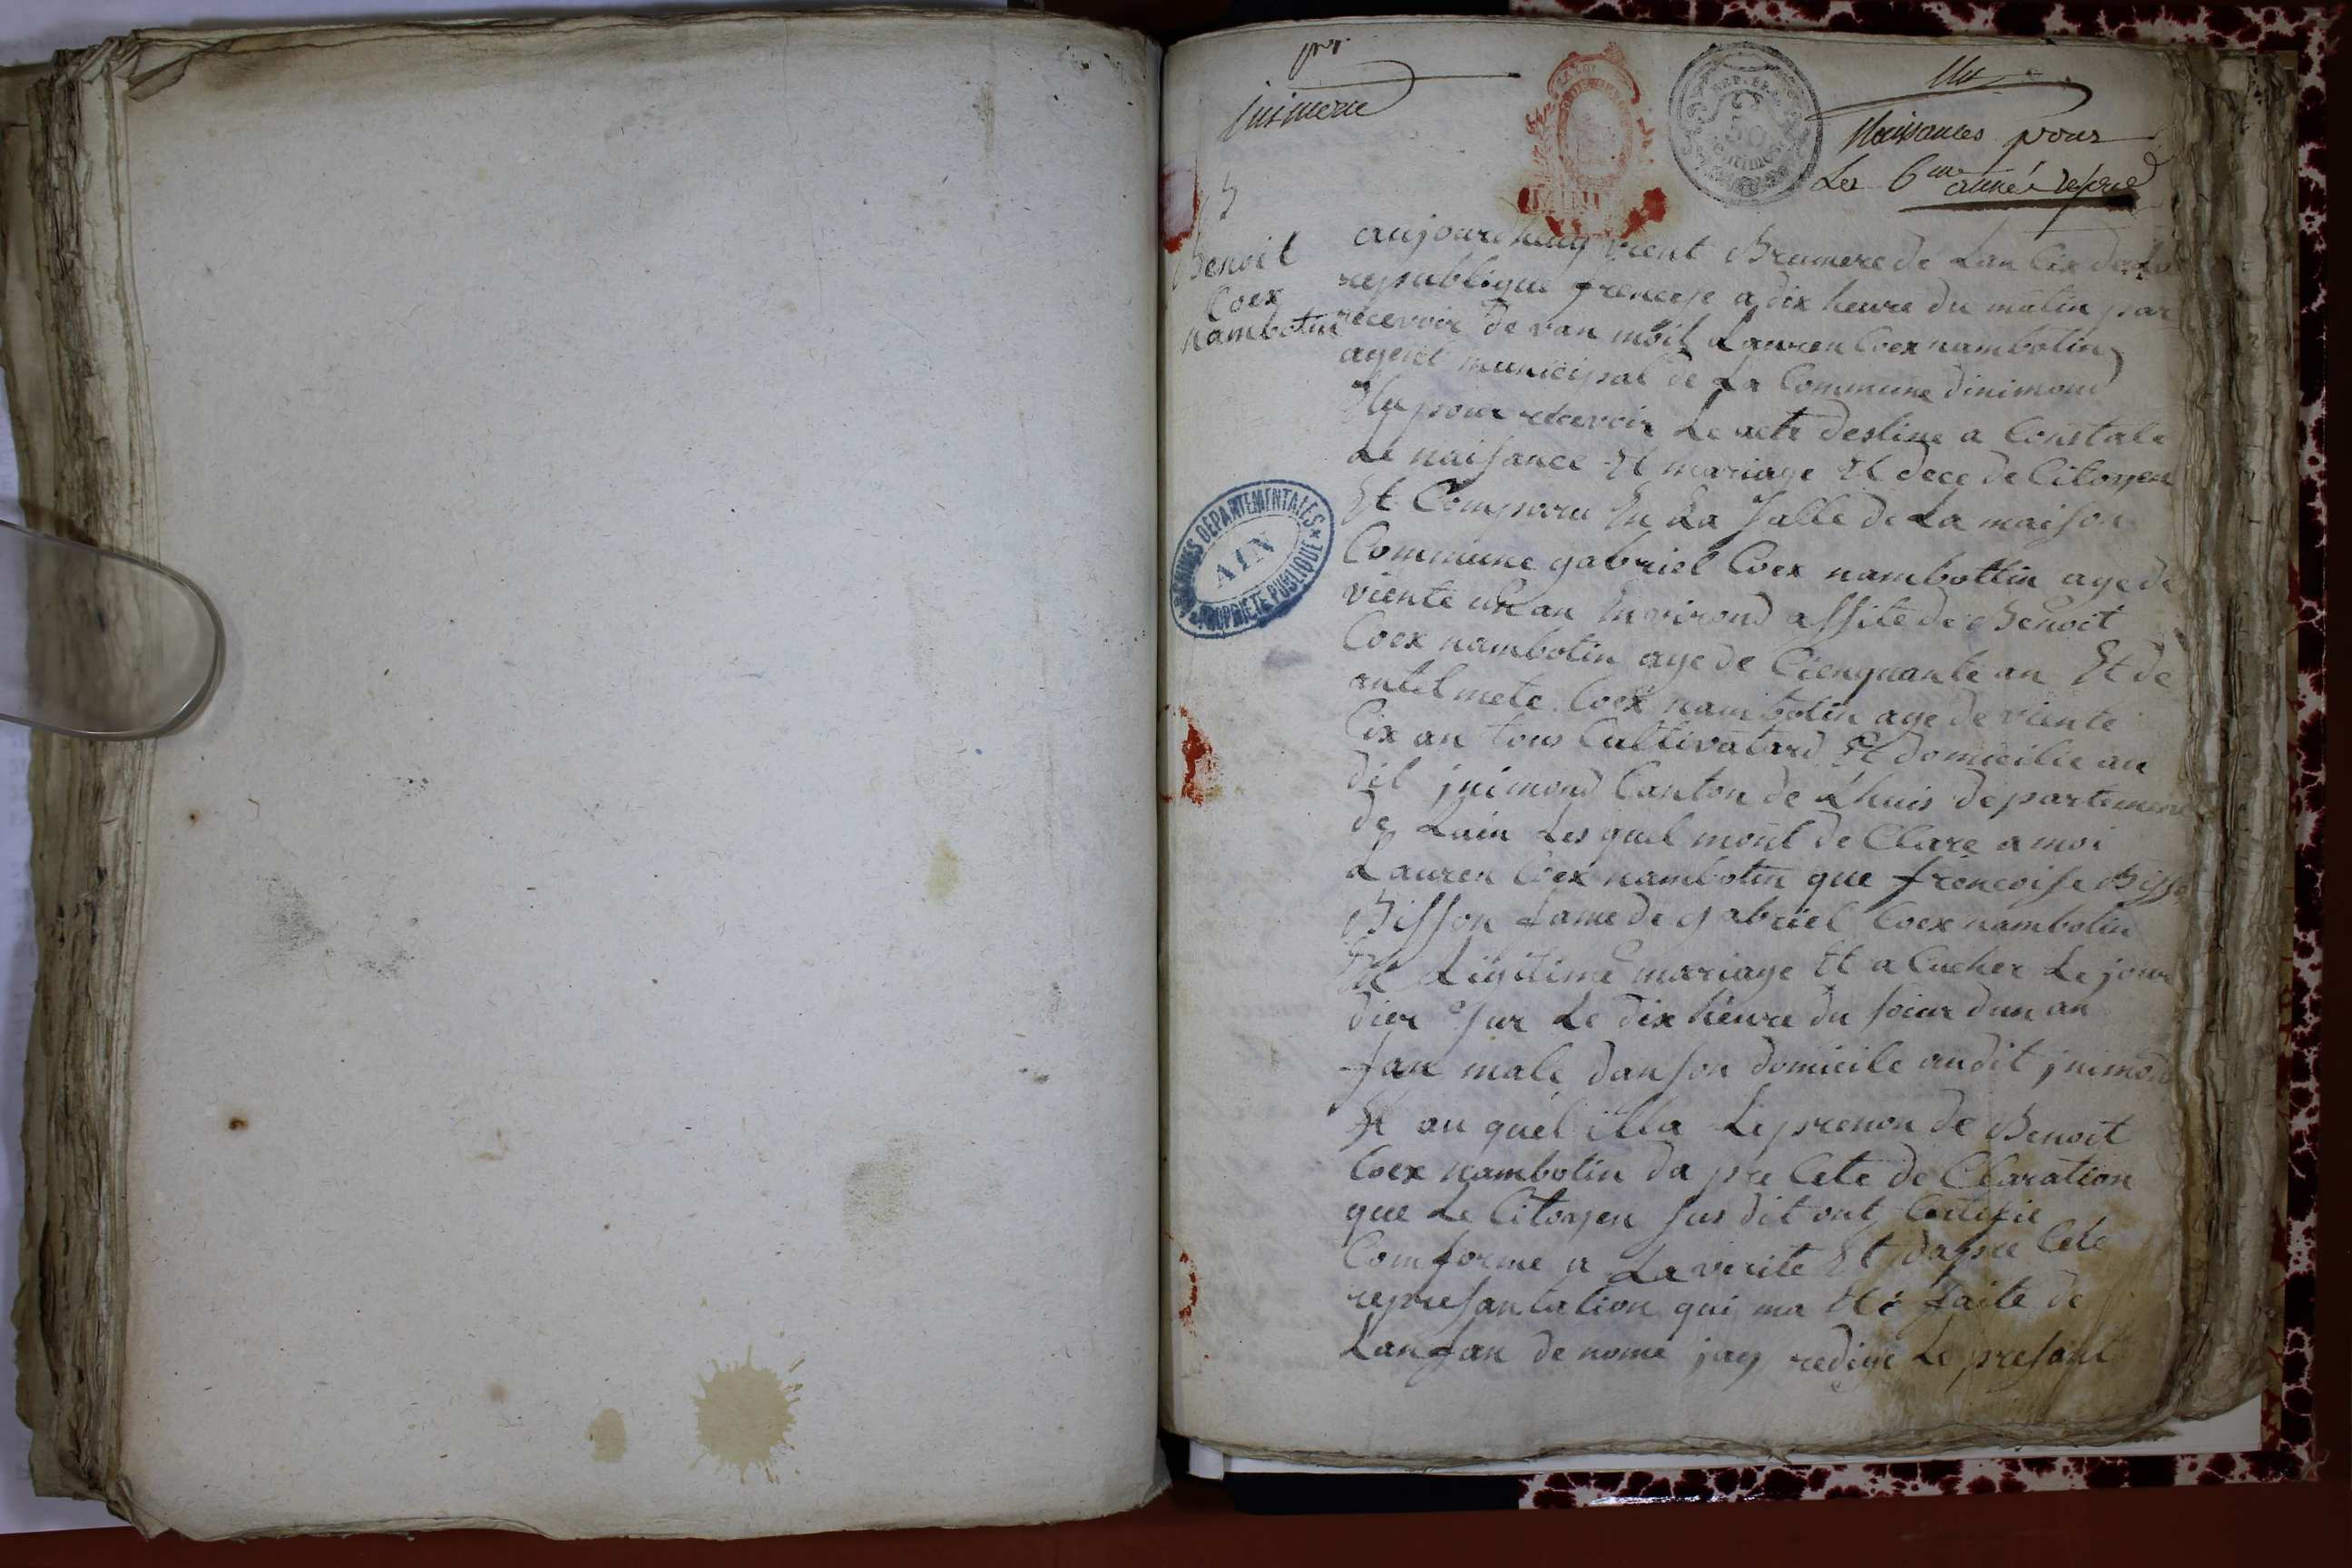 Naissances pour
Les 6me année
Benoit
Coex
nambotin
aujourdhuy vient Brumere de Lan Cix de La
republique francese a dix heure du matin par
recevoir de van moil Lauren Coex nambotin
agent municipal de La Commune dinimond
Elu pour recevoir Le acte destine a Constate
Le naisance Et mariage Et dece de Citoyen
Et Comparu En La Salle de La maison
Commune gabriel Coex nambottin age de
viente un an Environd assite de Benoit
Coex nambotin age de Cienquante an Et de
antelmete Coex nambotin age de viente
Cix an tous Cultivatard Et domicilie au
dit jnimond Canton de Lhuis departement
de Lain Les quel mont de Clare a moi
Lauren Coex nambotin que frencoise Bisso
Bisson fame de gabriel Coex nambotin
En Ligitime mariage Et a Cucher Le jour
dier Sur Le dix heure du soiur dun an
fan male dan son domicile audit jnimond
Et au quel illa Le prenon de Benoit
Coex nambotin da pre Cete de Claration
que Le Citoyen sus dit ont Certifie
Comforme a La verite Et dapre Cete
represantation qui ma Eté faite de
Lanfan de nome jay redige Le presant
ARCHIVES DÉPARTEMENTALES
AIN
PROPRIÉTÉ PUBLIQUE
REP. FRA.
50
centimes